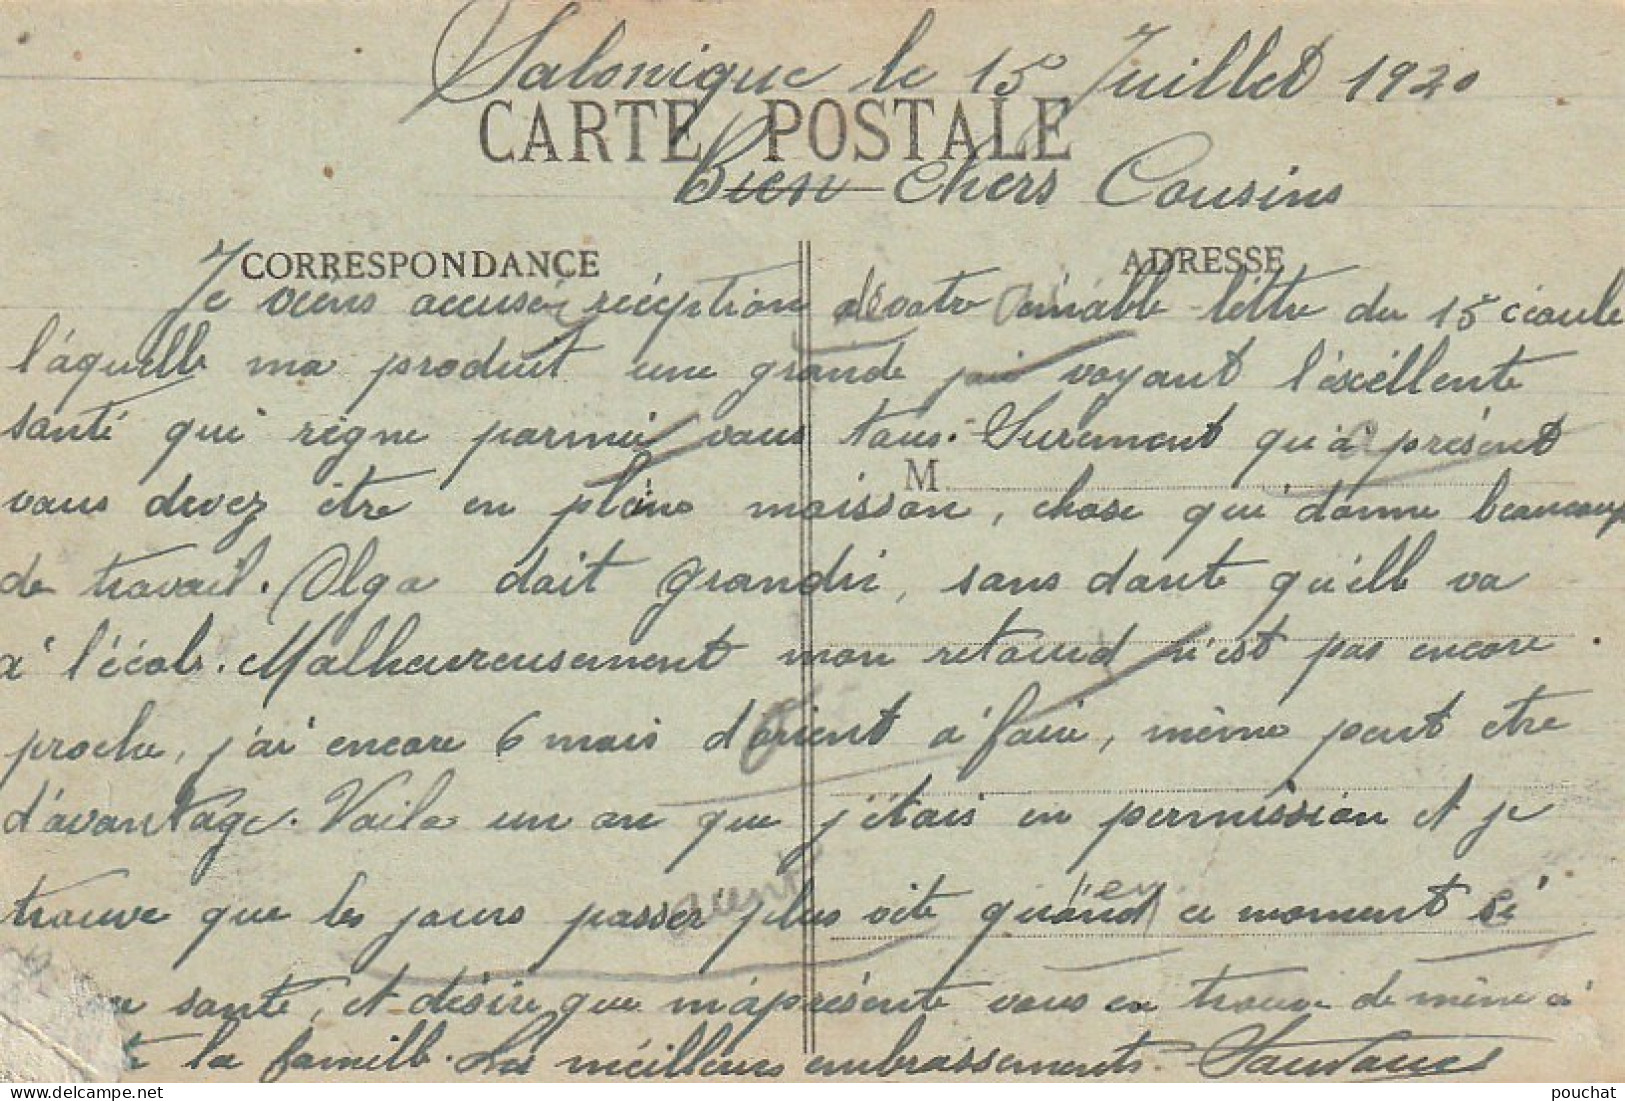 Salonique le 15 Juillet 1920
CARTE POSTALE
Bien Chers Cousins
CORRESPONDANCE
ADRESSE
Je viens accuser réception de votre aimable lettre du 15 écoulé
l'áquelle ma produit une grande joie voyant l'éxcéllente
santé qui règne parmi vous tous. Surement qu'à présent
M
vous devez être en pleine moisson, chose qui donne beaucoup
de travail. Olga doit grandir, sans doute qu'elle va
à l'école. Malheureusement mon retour n'est pas encore
proche, j'ai encore 6 mois d'orient à faire, même peut être
d'avantage. Voila un an que j'étais en permission et je
trouve que les jours passer plus vite qu'en ce moment si
santé, et désire que m'aprésente vous en trouve de même à
la famille. Les méilleurs embrassements.
pouchat